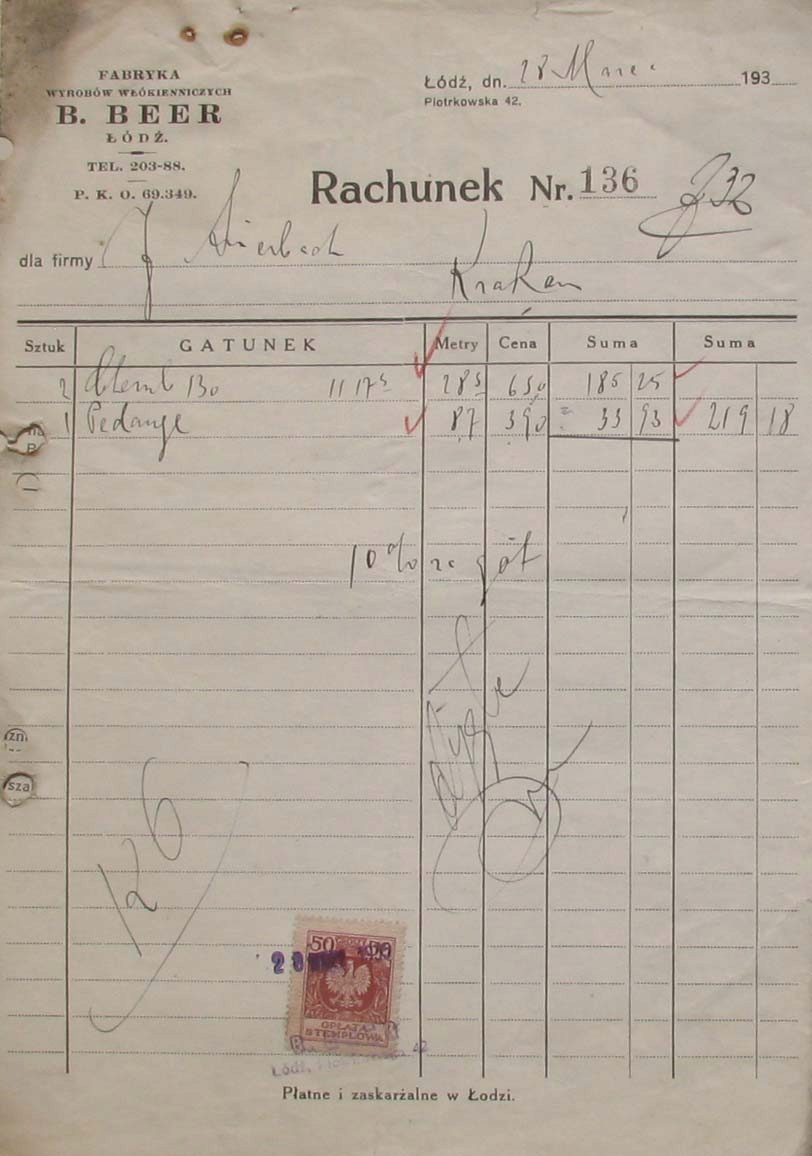 FABRYKA
WYROBÓW WŁÓKIENNICZYCH
B. BEER
ŁÓDŹ.
TEL. 203-88.
P. K. O. 69.349.
Łódź, dn. 28 193
Piotrkowska 42.
Rachunek Nr. 136
dla firmy J
Sztuk GATUNEK Metry Cena Suma Suma
2 130 11 17⁵ 28⁵ 650 185 25
1 8,7 3,90 = 33 93 219 18
10% za got
126
50 50
20
OPŁATA
STEMPLOWA
Łódź, Piotrkowska 42
Płatne i zaskarżalne w Łodzi.